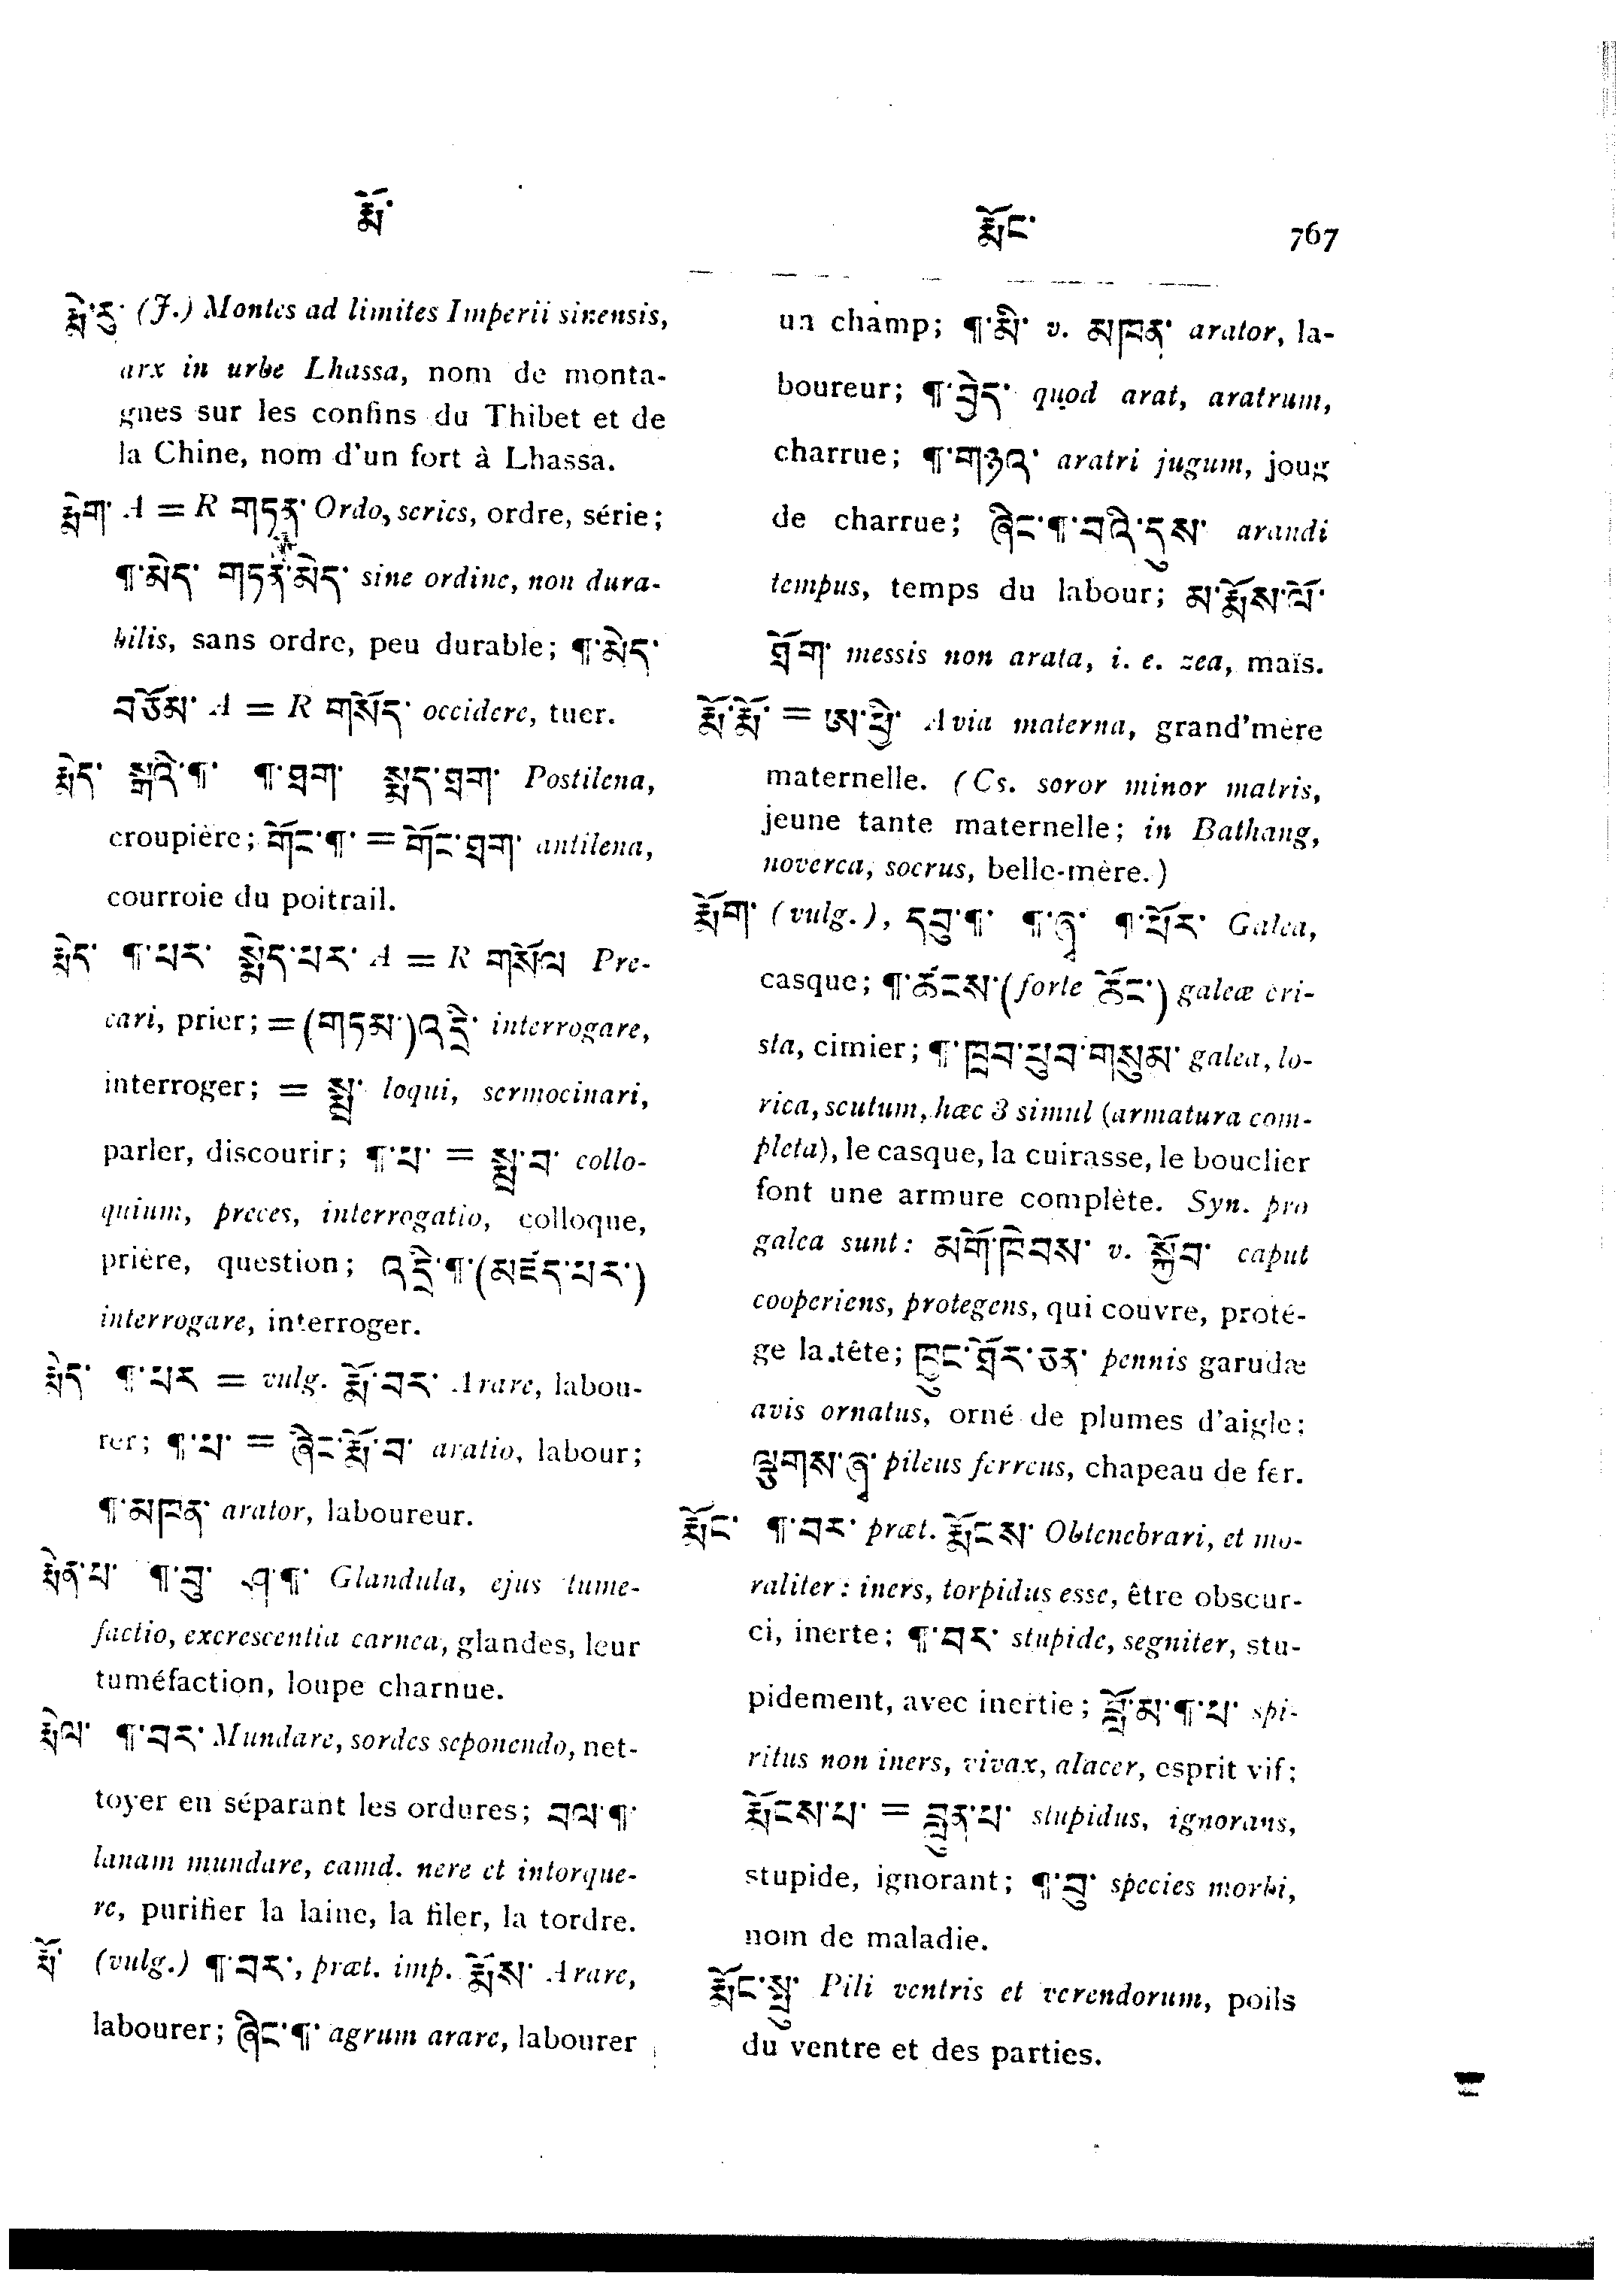 རྨོ་
རྨོང་ 767
རྨེ་རུ་ (J.) Montes ad limites Imperii sinensis,
arx in urbe Lhassa, nom de monta-
gnes sur les confins du Thibet et de
la Chine, nom d'un fort à Lhassa.
རྨེག་ A = R གཏན་ Ordo, series, ordre, série;
¶་མེད་ གཏན་མེད་ sine ordine, non dura-
bilis, sans ordre, peu durable; ¶་མེད་
བཅོམ་ A = R གསོད་ occidere, tuer.
རྨེད་ སྒའི་¶་ ¶་ཐག་ སྨད་ཐག་ Postilena,
croupière; གོང་¶་ = གོང་ཐག་ antilena,
courroie du poitrail.
རྨེད་ ¶་པར་ སྨེད་པར་ A = R གསོལ Pre-
cari, prier; = (གཏམ་)འདྲི་ interrogare,
interroger; = སྨྲ་ loqui, sermocinari,
parler, discourir; ¶་པ་ = སྨྲ་བ་ collo-
quium, preces, interrogatio, colloque,
prière, question; འདྲི་¶་(མཛད་པར་)
interrogare, interroger.
རྨེད་ ¶་པར = vulg. རྨོ་བར་ Arare, labou-
rer; ¶་པ་ = ཞིང་རྨོ་བ་ aratio, labour;
¶་མཁན་ arator, laboureur.
རྨེན་པ་ ¶་བུ་ ཤ་¶་ Glandula, ejus tume-
factio, excrescentia carnea, glandes, leur
tuméfaction, loupe charnue.
རྨེལ་ ¶་བར་ Mundare, sordes seponendo, net-
toyer en séparant les ordures; བལ་¶་
lanam mundare, eamd. nere et intorque-
re, purifier la laine, la filer, la tordre.
རྨོ་ (vulg.) ¶་བར་, præt. imp. རྨོས་ Arare,
labourer; ཞིང་¶་ agrum arare, labourer
un champ; ¶་མི་ v. མཁན་ arator, la-
boureur; ¶་བྱེད་ quod arat, aratrum,
charrue; ¶་གཉའ་ aratri jugum, joug
de charrue; ཞིང་¶་བའི་དུས་ arandi
tempus, temps du labour; མ་རྨོས་ལོ་
ཐོག་ messis non arata, i. e. zea, maïs.
རྨོ་རྨོ་ = ཨ་ཕྱི་ Avia materna, grand'mère
maternelle. (Cs. soror minor matris,
jeune tante maternelle; in Bathang,
noverca, socrus, belle-mère.)
རྨོག་ (vulg.), དབུ་¶་ ¶་ཞྭ་ ¶་ཕོར་ Galea,
casque; ¶་ཚངས་(forte ཚོང་) galeæ cri-
sta, cimier; ¶་ཁྲབ་ཕུབ་གསུམ་ galea, lo-
rica, scutum, hæc 3 simul (armatura com-
pleta), le casque, la cuirasse, le bouclier
font une armure complète. Syn. pro
galea sunt: མགོ་ཁེབས་ v. སྐྱོབ་ caput
cooperiens, protegens, qui couvre, proté-
ge la tête; ཁྱུང་ཐོར་ཅན་ pennis garudæ
avis ornatus, orné de plumes d'aigle;
ལྕགས་ཞྭ་ pileus ferreus, chapeau de fer.
རྨོང་ ¶་བར་ præt. རྨོངས་ Obtenebrari, et mo-
raliter: iners, torpidus esse, être obscur-
ci, inerte; ¶་བར་ stupide, segniter, stu-
pidement, avec inertie; བློ་མ་¶་པ་ spi-
ritus non iners, vivax, alacer, esprit vif;
རྨོངས་པ་ = བླུན་པ་ stupidus, ignorans,
stupide, ignorant; ¶་བུ་ species morbi,
nom de maladie.
རྨོང་སྤུ་ Pili ventris et verendorum, poils
du ventre et des parties.